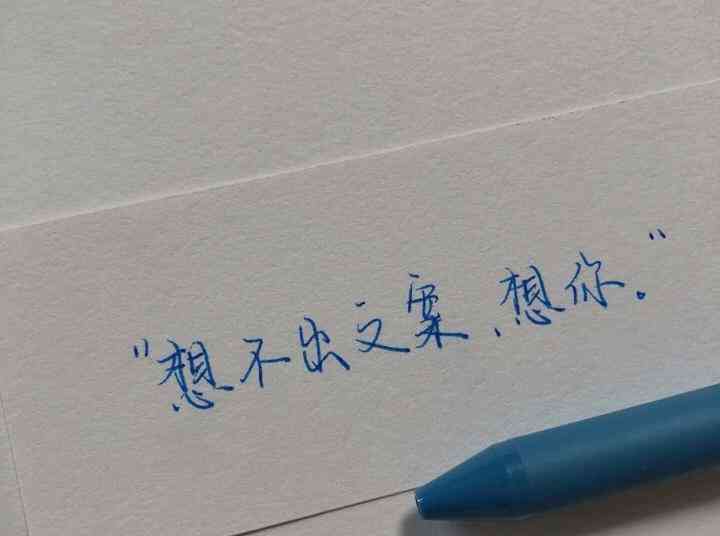 "想不出文案、想你。"